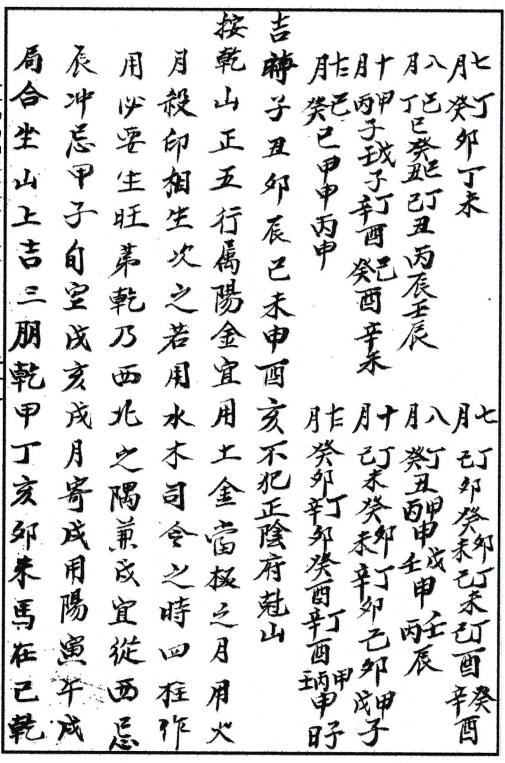 七月 丁癸卯丁未
八月 己丁巳癸丑己丁己丑丙辰壬辰
十月 甲丙子戊壬子丁辛酉己癸酉辛未
十二月 己癸巳甲申丙申
七月 丁己卯癸未丁己未丁己酉癸辛酉
八月 丁癸丑甲丙申戊壬申壬丙辰
十月 丁己未癸未辛卯己卯甲戊子
十二月 癸卯丁辛卯癸酉丁辛酉
吉時子丑卯辰巳未申酉亥不犯正陰府尅山
按乾山正五行屬陽金宜用土金當極之月用火
月殺印相生次之若用水木司令之時四柱作
用必要生旺第乾乃西北之隅兼戌宜從西忌
辰冲忌甲子旬空戌亥戌月寄戌用陽寅午戌
局合坐山上吉三朋乾甲丁亥卯未馬在巳乾